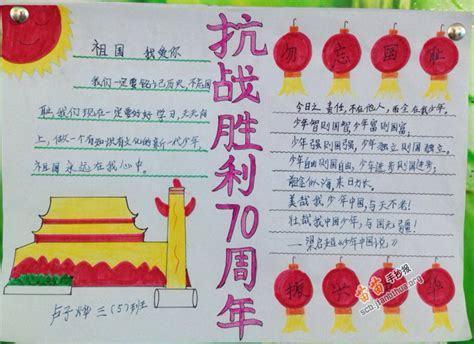 祖国 我爱你
我们一定要铭记历史,不忘国
耻,我们现在一定要好好学习,天天向
上,做一个有知识有文化的新一代少年,
祖国永远在我心中。
卢子烨 三(5)班
抗战胜利70周年
勿忘国耻
今日之责任,不在他人,而全在我少年。
少年智则国智,少年富则国富;
少年强则国强,少年独立则国独立,
少年自由则国自由,少年进步则国进步;
前途似海,来日方长。
美哉我少年中国,与天不老!
壮哉我中国少年,与国无疆!
——梁启超《少年中国说》
振兴
手抄报
scb.jianbihua.org